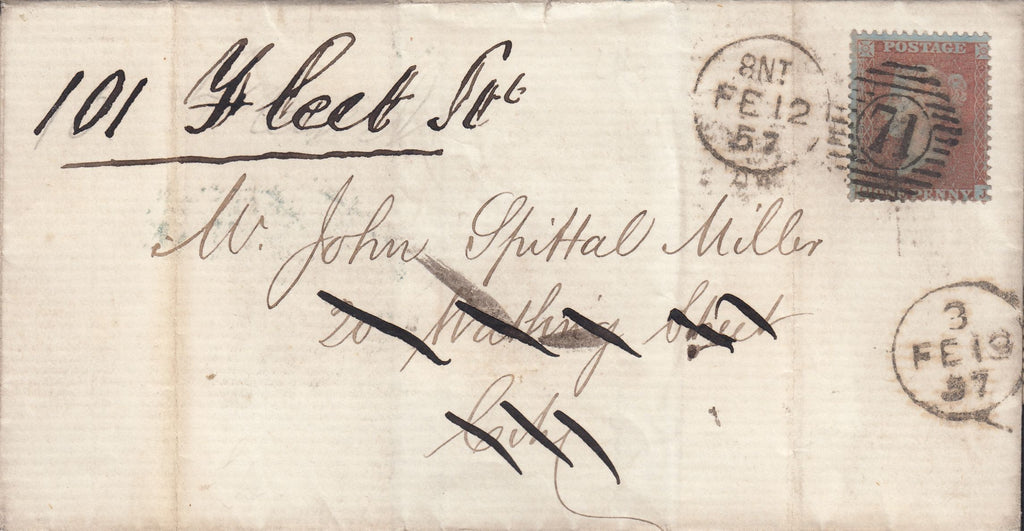 101 Fleet Stt
8NT
FE 12
57
POSTAGE
71
ONE PENNY
J
Mr. John Spittal Miller
20 Watling Street
City
3
FE 13
57